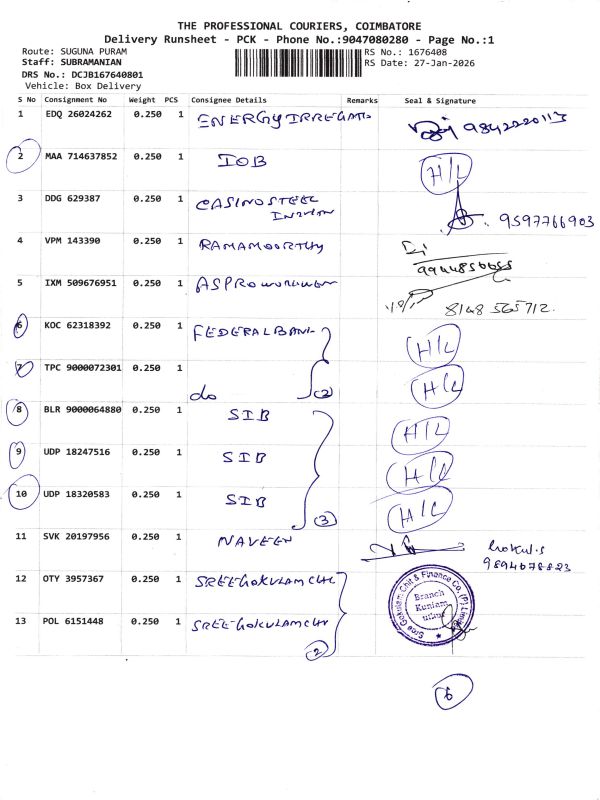 THE PROFESSIONAL COURIERS, COIMBATORE
Delivery Runsheet - PCK - Phone No.:9047080280 - Page No.:1
Route: SUGUNA PURAM
RS No.: 1676408
Staff: SUBRAMANIAN
RS Date: 27-Jan-2026
DRS No.: DCJB167640801
Vehicle: Box Delivery
S No Consignment No Weight PCS Consignee Details Remarks Seal & Signature
1 EDQ 26024262 0.250 1 ENERGY IRREGATI
2 MAA 714637852 0.250 1 IOB H/L
3 DDG 629387 0.250 1 CASINO STEEL
9597766903
4 VPM 143390 0.250 1 RAMAMOORTHY
9944856655
5 IXM 509676951 0.250 1
8148 565712.
6 KOC 62318392 0.250 1 FEDERAL BANK H/L
7 TPC 9000072301 0.250 1 do (2) H/L
8 BLR 9000064880 0.250 1 SIB H/L
9 UDP 18247516 0.250 1 SIB H/L
10 UDP 18320583 0.250 1 SIB (3) H/L
11 SVK 20197956 0.250 1 NAVEEN Gokul.s
12 OTY 3957367 0.250 1 SREE GOKULAM CHI
13 POL 6151448 0.250 1 SREE GOKULAM CHI
2
Sree Gokulam Chit & Finance Co. (P) Limited
Branch
Kuniam
uthur
6